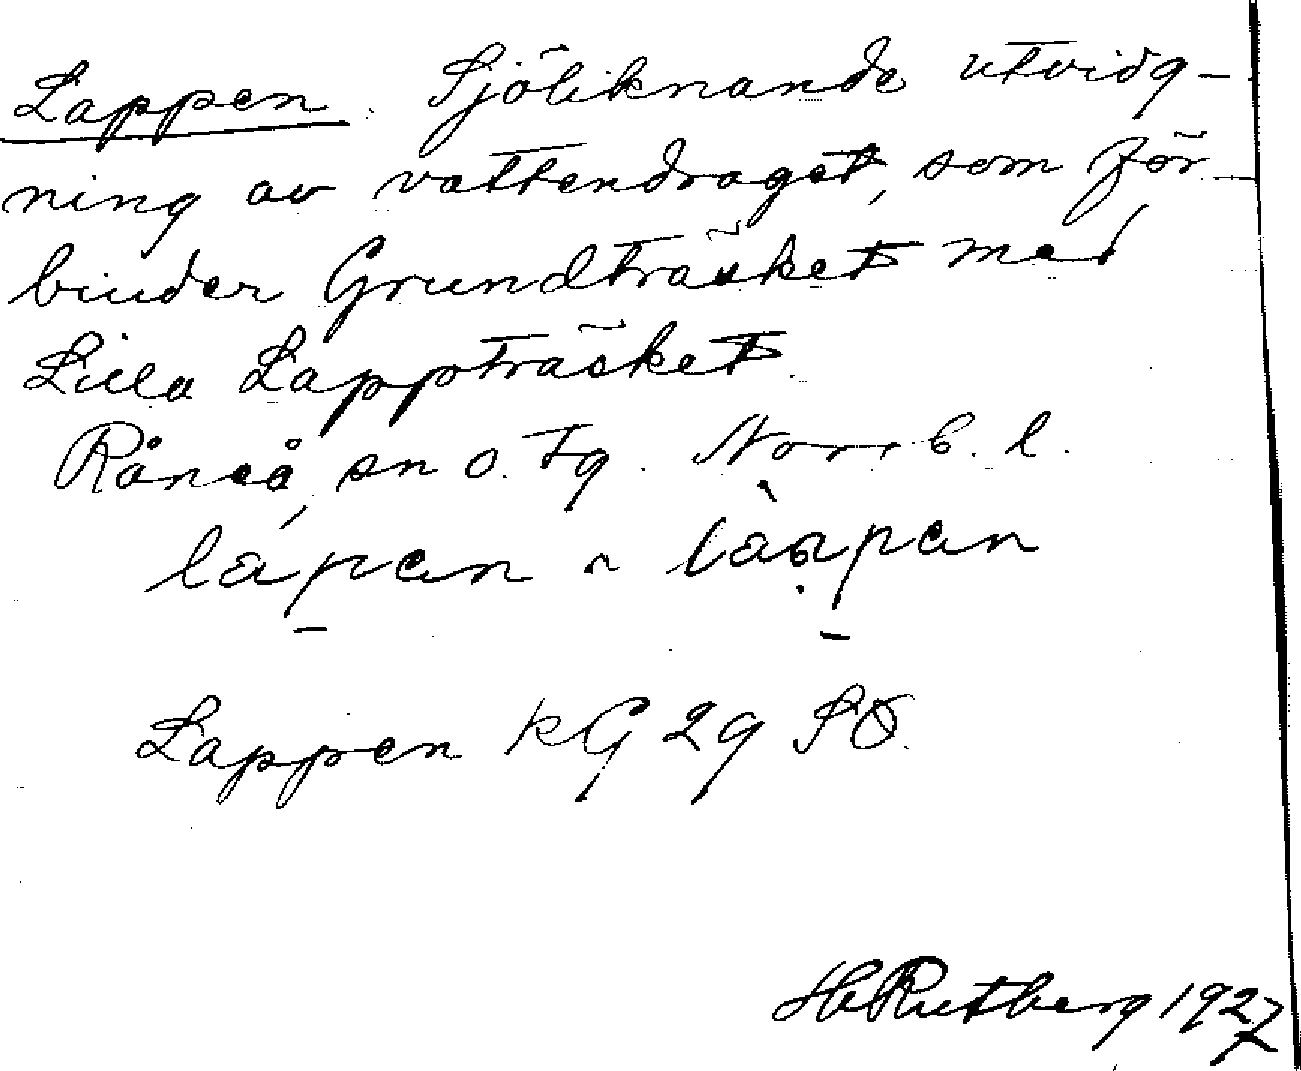 Lappen. Sjöliknande utvidg-
ning av vattendraget, som för-
binder Grundträsket med
Lilla Lappträsket.
Råneå sn o. tg. Norrb. l.
Lappen KG 29 SO.
H Rutberg 1927